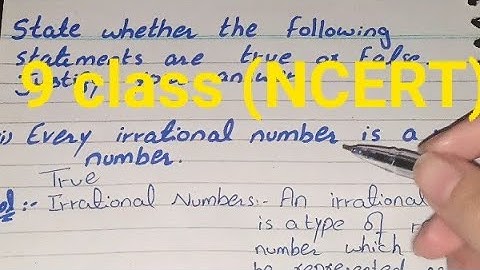 State whether the following
statements are true or false.
9 class (NCERT)
i) Every irrational number is a
number.
True
:- Irrational Numbers:- An irrational
is a type of
number which
be represented